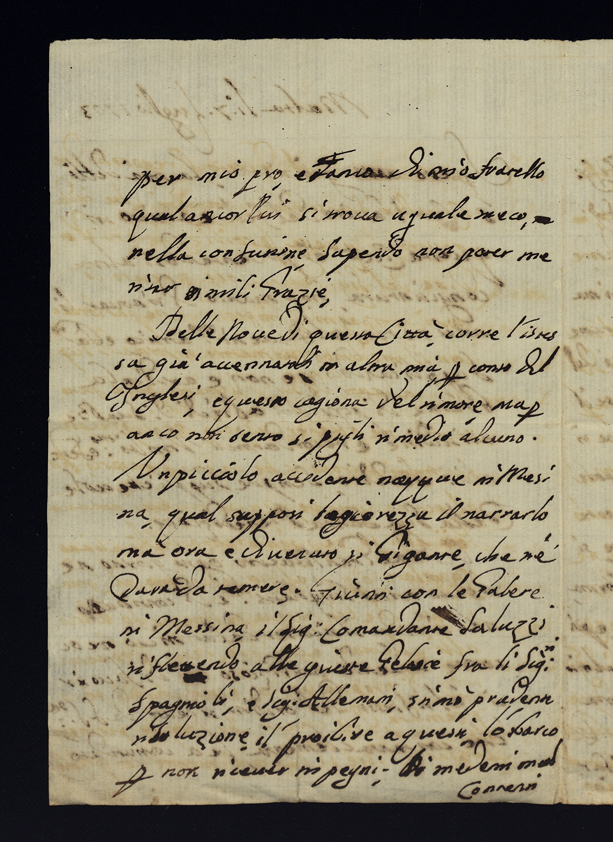 per mio pro, e di mio fratello
qual ancor lui si trova uguale meco,
nella confusione sapendo non poter me
simili Grazie,
Delle Nove di questa Città, corre l'istes
sa già accennatali in altra mia p conto del
Inglesi, e questo cagiona del rimore, ma p
anco non sento si pigli rimedio alcuno.
Un piccolo accidente nacque in Mesi
na, qual supposi legierezza il narrarlo
mà ora e divenuto si Gigante, che n'è
dara da temere. Giunti con le Galere
in Messina il Sig. Comandante Saluzzi
riflettendo alle guerre fra li Sig.ri
Spagnoli, e Sig. Allemani, stimò prudente
risoluzione il proibire a questi lo sbarco
p non ricever impegni. Li medemi mal
Contenti